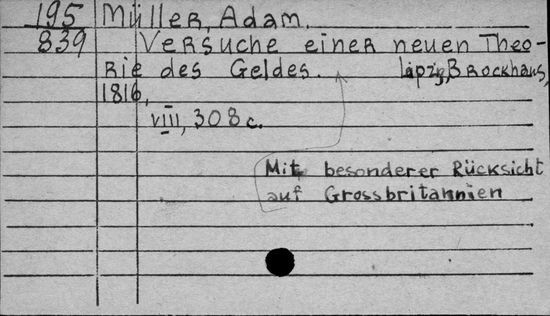 195 Müller, Adam.
839 Versuche einer neuen Theo-
rie des Geldes. Lpzg, Brockhaus,
1816,
VIII, 308 c.
Mit besonderer Rücksicht
auf Grossbritannien